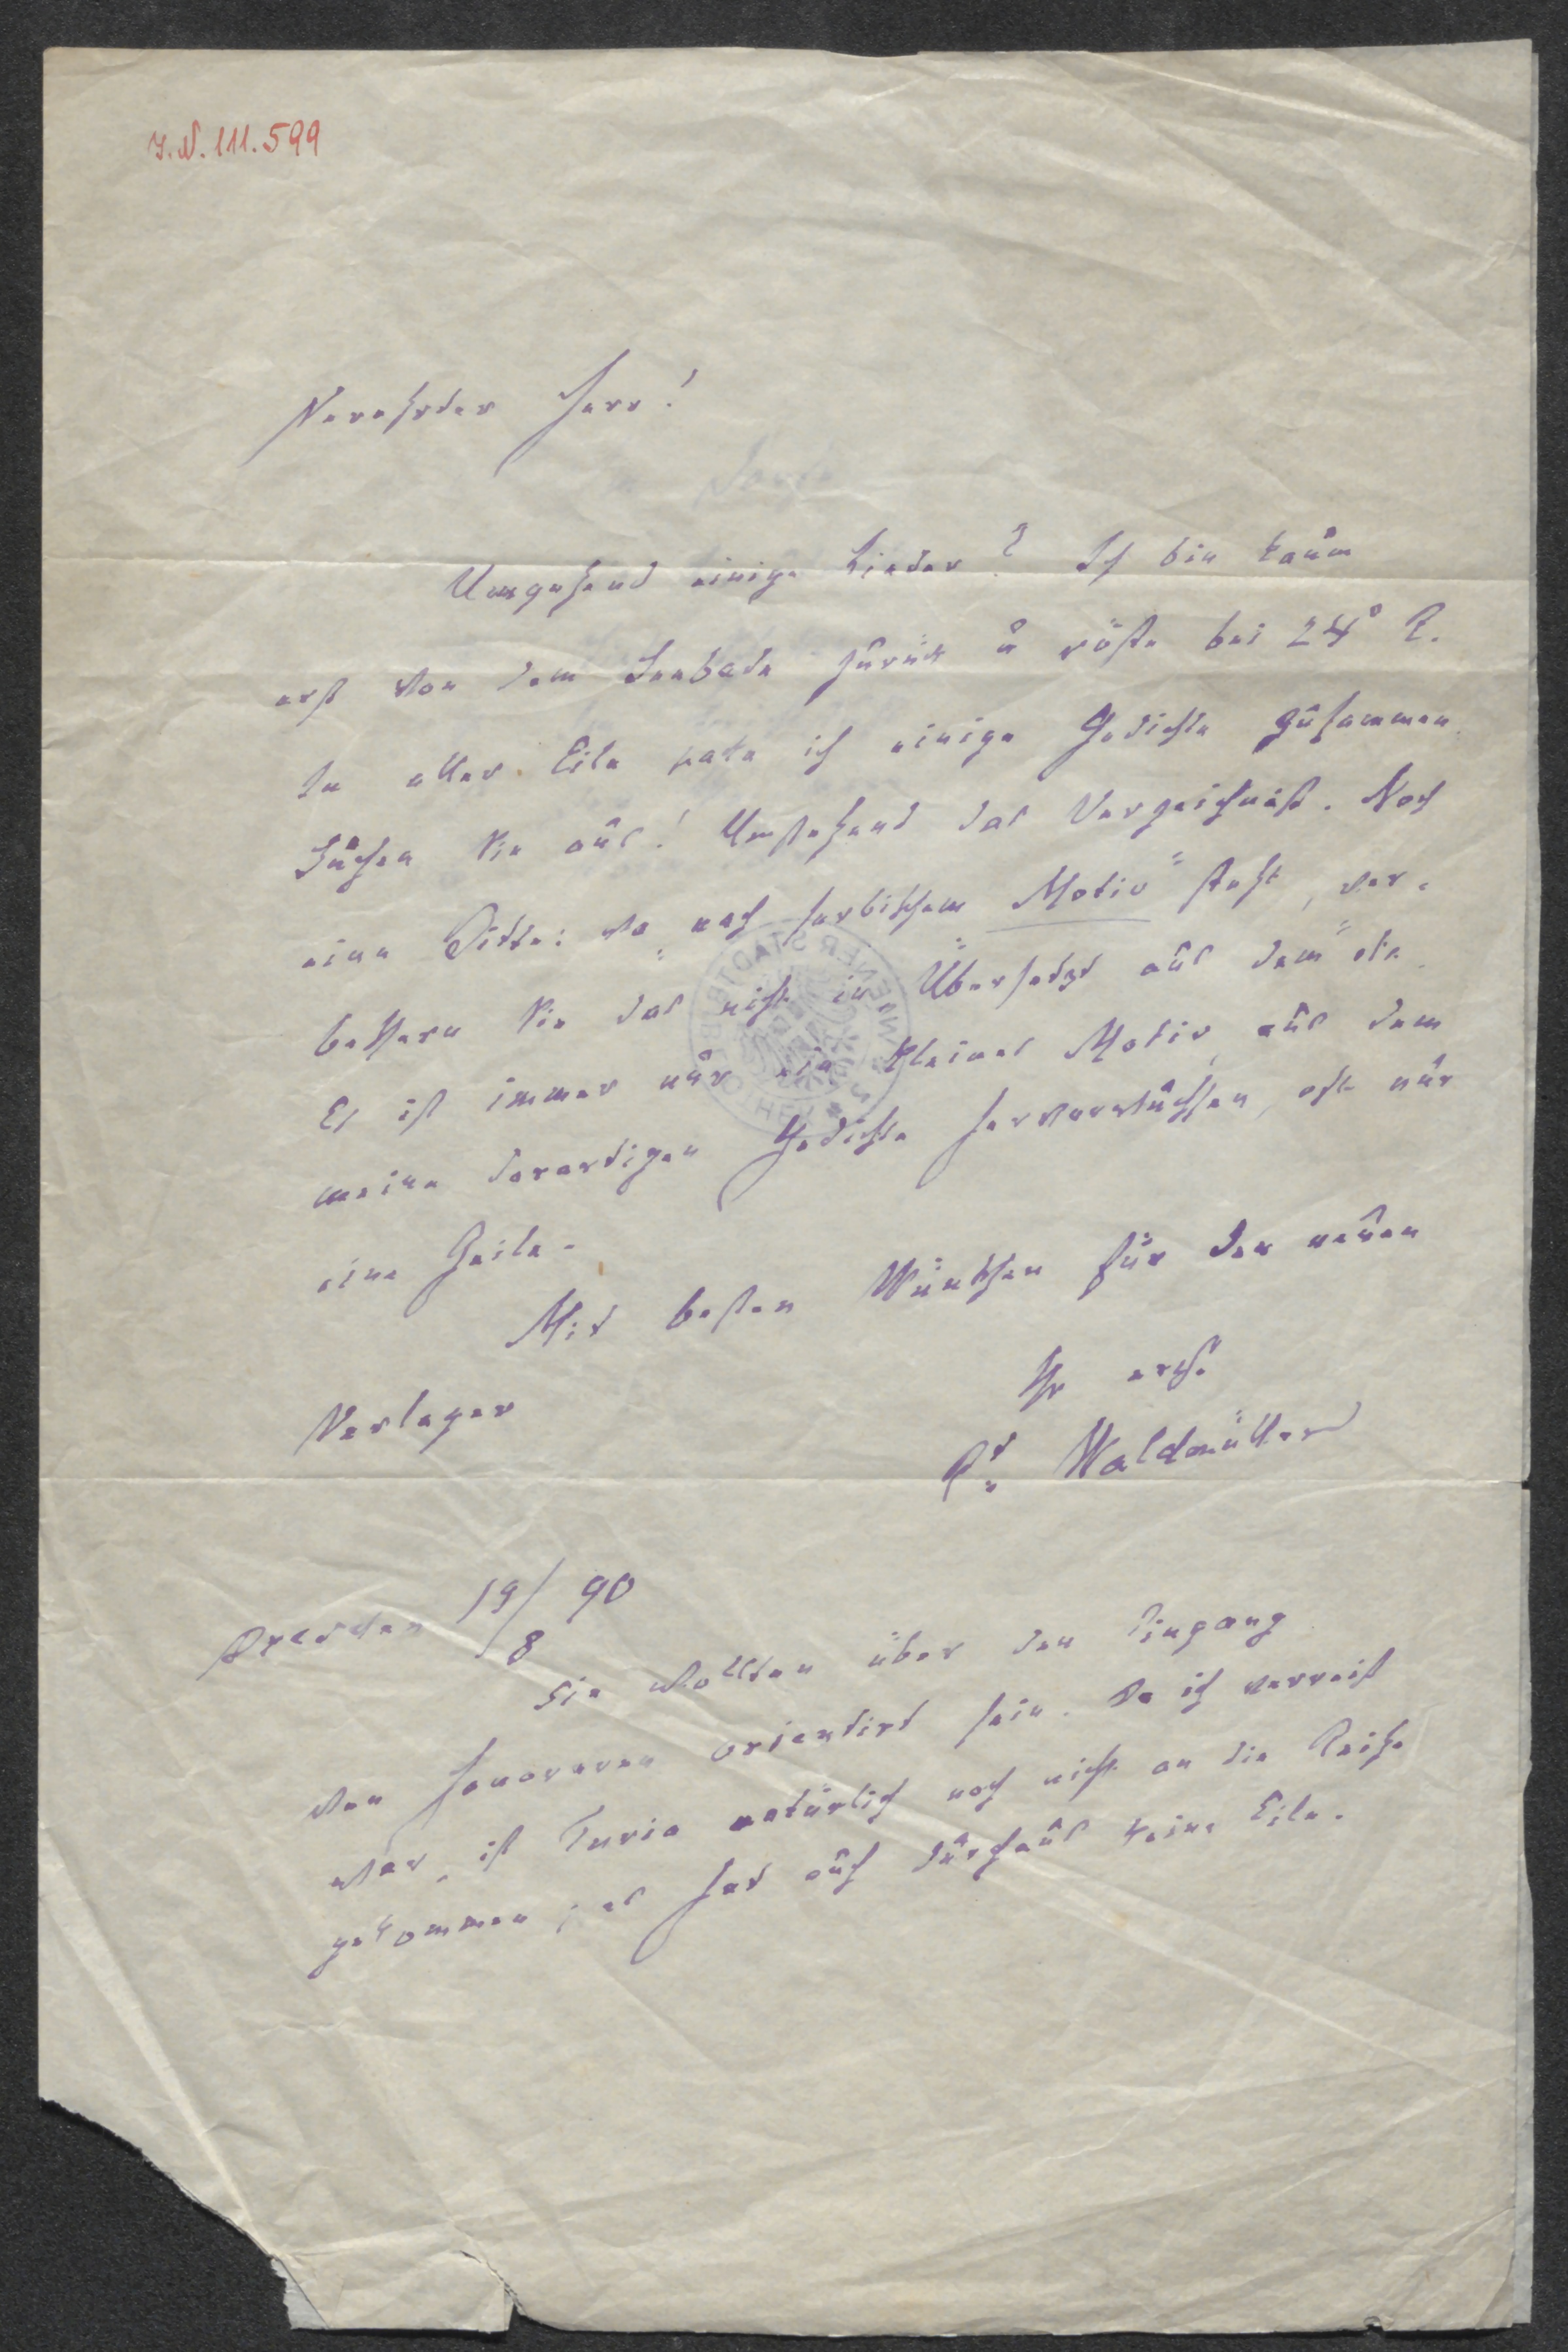 J.N. 111.599
Verehrter Herr!
Umgehend einige Lieder? Ich bin kaum
erst von dem Seebade zurück u röste bei 24° R.
In aller Eile pake ich einige Gedichte zusammen.
Suchen Sie aus! Umstehend das Verzeichniß. Noch
eine Bitte: wo „nach serbischem Motiv“ steht, ver-
bessern Sie das nicht in „Übersetzt aus dem“ etc.
Es ist immer nur ein kleines Motiv, aus dem
meine derartigen Gedichte hervorwuchsen, oft nur
eine Zeile.
Mit besten Wünschen für den neuen
Verleger
Ihr ergb.
Rt Waldmüller
Dresden 19/8 90
Sie wollten über den Eingang
von Honoraren orientirt sein. Da ich verreist
war, ist Turia natürlich noch nicht an die Reihe
gekommen; es hat auch durchaus keine Eile.